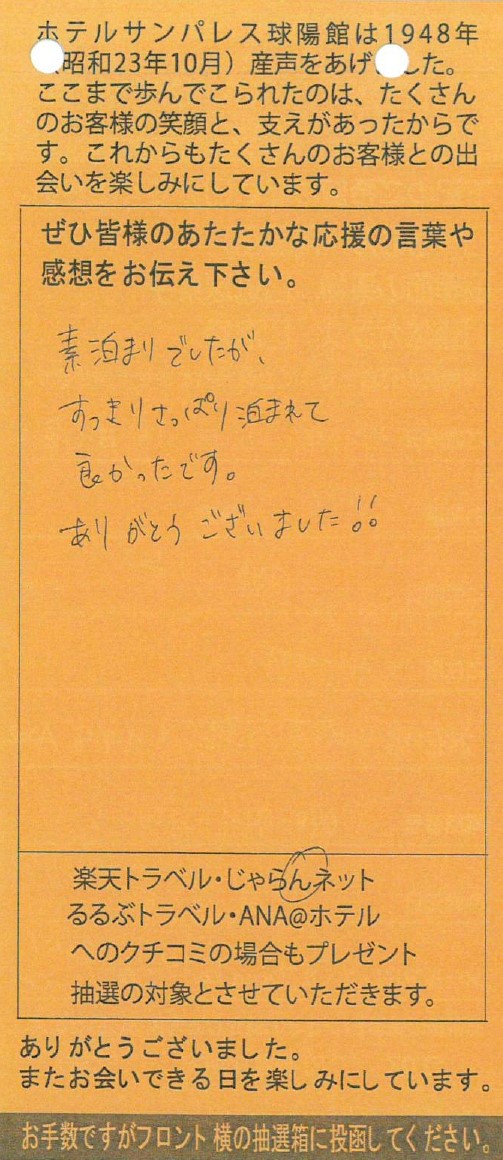 ホテルサンパレス球陽館は1948年
昭和23年10月）産声をあげ した。
ここまで歩んでこられたのは、たくさん
のお客様の笑顔と、支えがあったからで
す。これからもたくさんのお客様との出
会いを楽しみにしています。
ぜひ皆様のあたたかな応援の言葉や
感想をお伝え下さい。
素泊まりでしたが、
すっきりさっぱり泊まれて
良かったです。
ありがとうございました!!
楽天トラベル・じゃらんネット
るるぶトラベル・ANA@ホテル
へのクチコミの場合もプレゼント
抽選の対象とさせていただきます。
ありがとうございました。
またお会いできる日を楽しみにしています。
お手数ですがフロント横の抽選箱に投函してください。